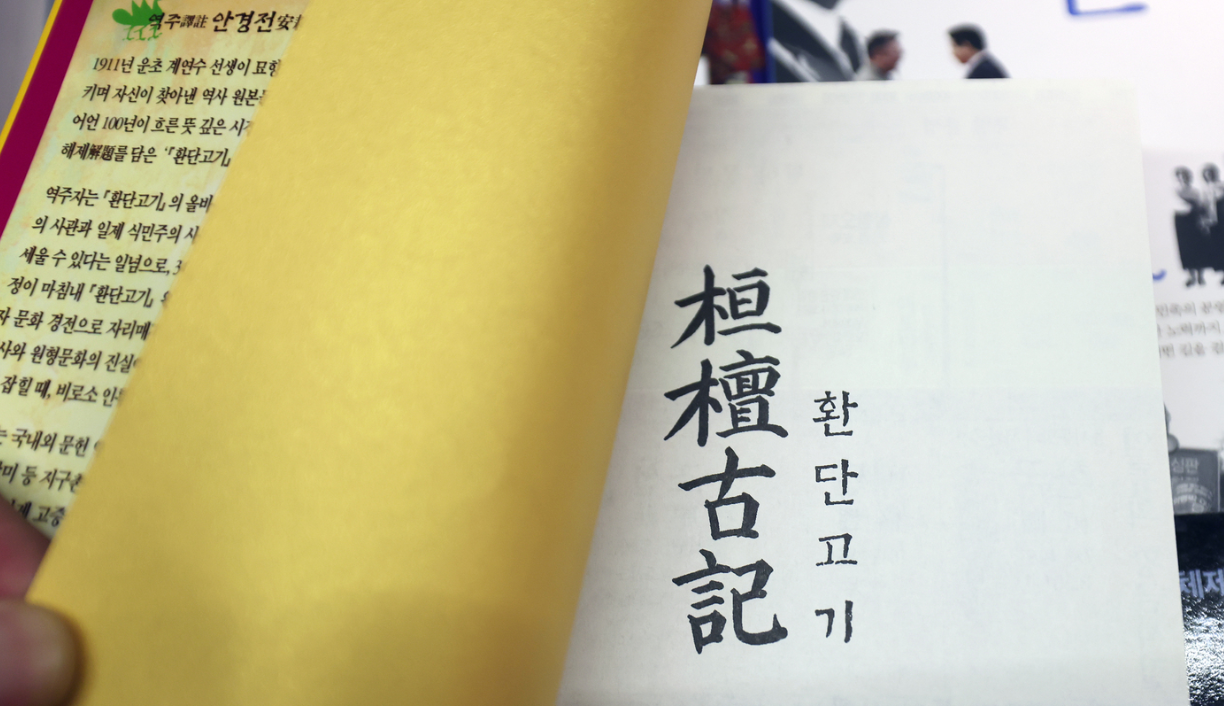 역주譯註 안경전安
1911년 운초 계연수 선생이 묘향
키며 자신이 찾아낸 역사 원본
어언 100년이 흐른 뜻 깊은 시
해제解題를 담은 『환단고기』
역주자는 『환단고기』의 올바
의 사관과 일제 식민주의 사
세울 수 있다는 일념으로,
정이 마침내 『환단고기』
자 문화 경전으로 자리매
사와 원형문화의 진실
잡힐 때, 비로소 인
는 국내외 문헌
미 등 지구촌
고증
桓檀古記
환단고기
민족의 끝
노력까지
심판
체제